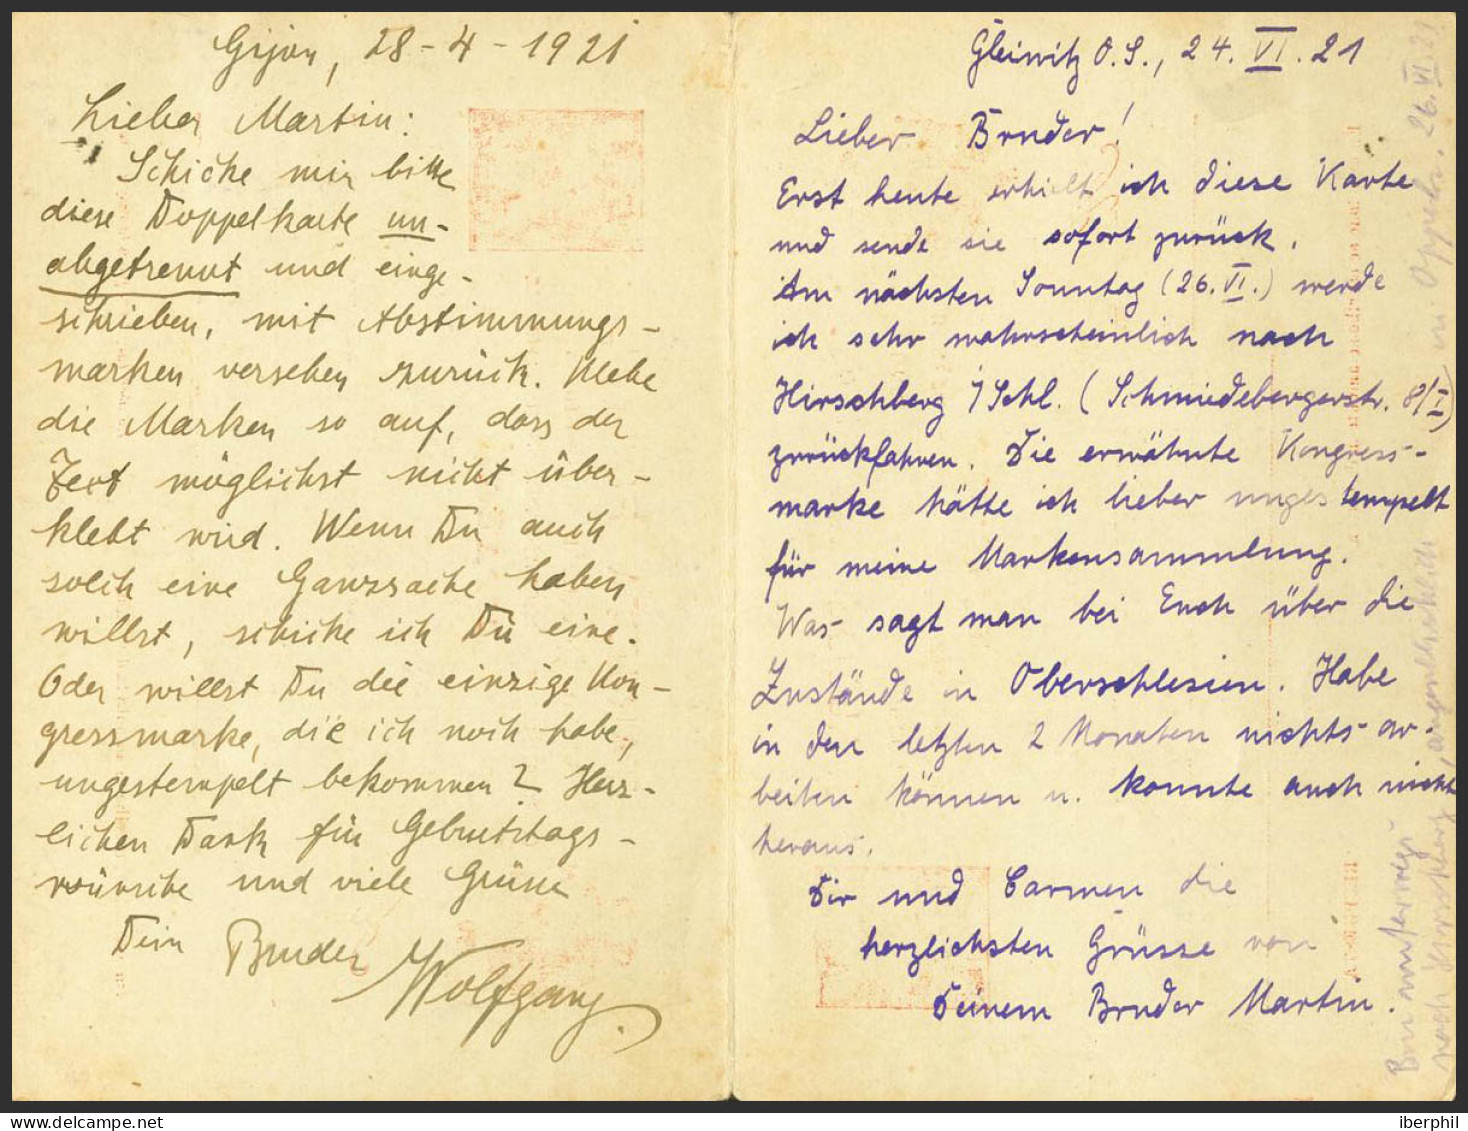 Gijon, 28-4-1921
Lieber Martin:
Schicke mir bitte
diese Doppelkarte un-
abgetrennt und einge-
schrieben, mit Abstimmungs-
marken versehen zurück. Klebe
die Marken so auf, dass der
Text möglichst nicht über-
klebt wird. Wenn Du auch
solch eine Ganzsache haben
willst, schicke ich Dir eine.
Oder willst Du die einzige Kon-
gressmarke, die ich noch habe,
ungestempelt bekommen? Herz-
lichen Dank für Geburtstags-
wünsche und viele Grüsse
Dein Bruder Wolfgang.
Gleiwitz O.S., 24. VI. 21
Lieber Bruder!
Erst heute erhielt ich diese Karte
und sende sie sofort zurück.
Am nächsten Sonntag (26. VI.) werde
ich sehr wahrscheinlich nach
Hirschberg i/Schl. (Schmiedebergerstr. 8/I)
zurückfahren. Die erwähnte Kongress-
marke hätte ich lieber ungestempelt
für meine Markensammlung.
Was sagt man bei Euch über die
Zustände in Oberschlesien. Habe
in den letzten 2 Monaten nichts ar-
beiten können u. konnte auch nicht
heraus.
Dir und Carmen die
herzlichsten Grüsse von
Deinem Bruder Martin.
Bin unterwegs
nach Hirschberg, augenblicklich in Oppeln. 26. VI. 21
iberphil